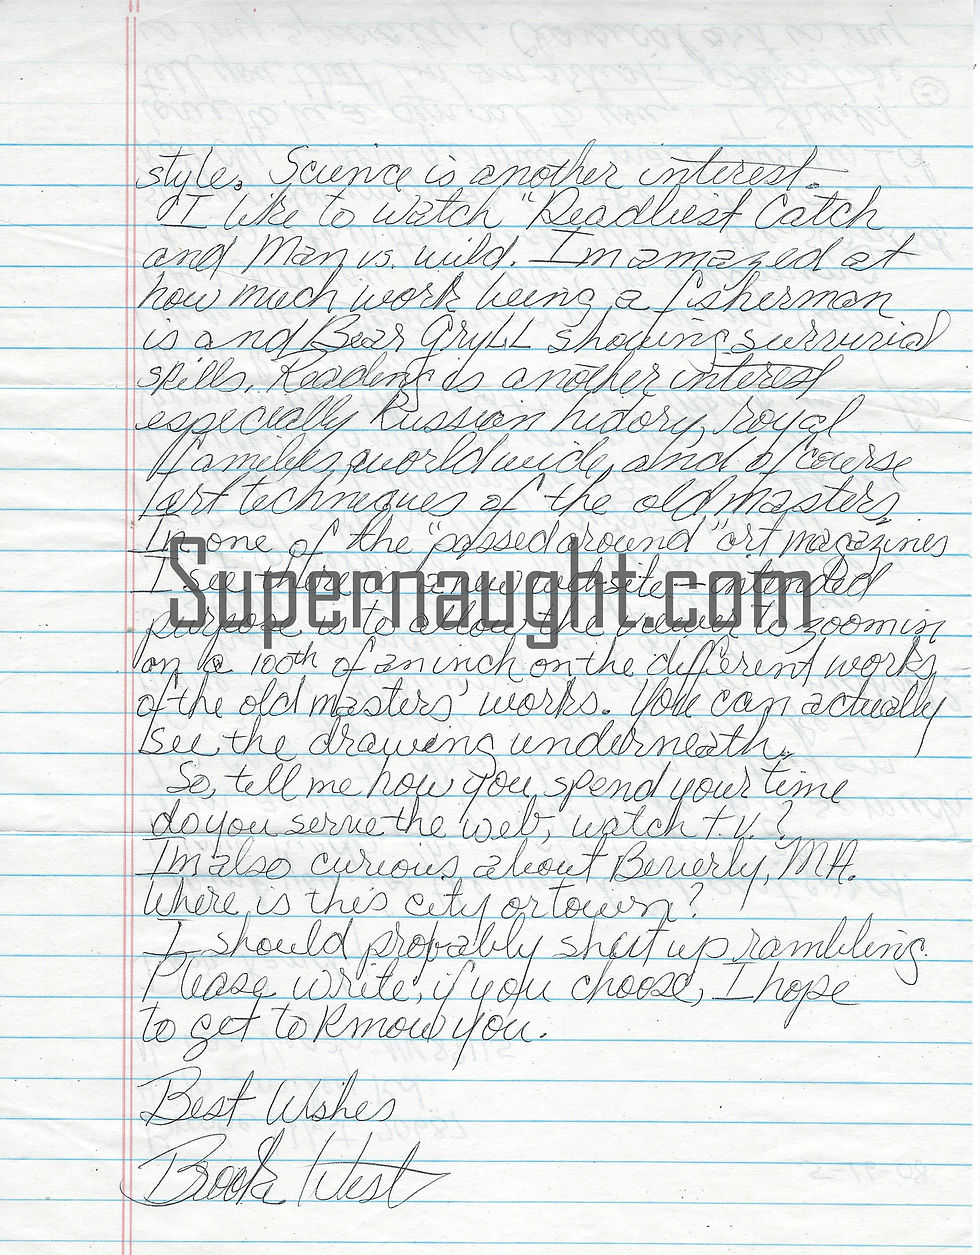 style. Science is another interest.
I like to watch "Deadliest Catch
and Man vs. wild. I'm amazed at
how much work being a fisherman
is and Bear GryLL showing survivial
skills. Reading is another interest
especially Russian history, royal
families, world wide, and of course
art techniques of the old masters.
In one of the "passed around" art magazines
I see there is a new website - intended
purpose is to allow the viewer to zoom in
on a 100th of an inch on the different works
of the old masters' works. You can actually
see the drawing underneath.
So, tell me how you spend your time
do you serve the web, watch t.v.?
I'm also curious about Beverly, MA.
Where is this city or town?
I should probably shut up rambling.
Please write, if you choose, I hope
to get to know you.
Best Wishes
Brook West
Supernaught.com